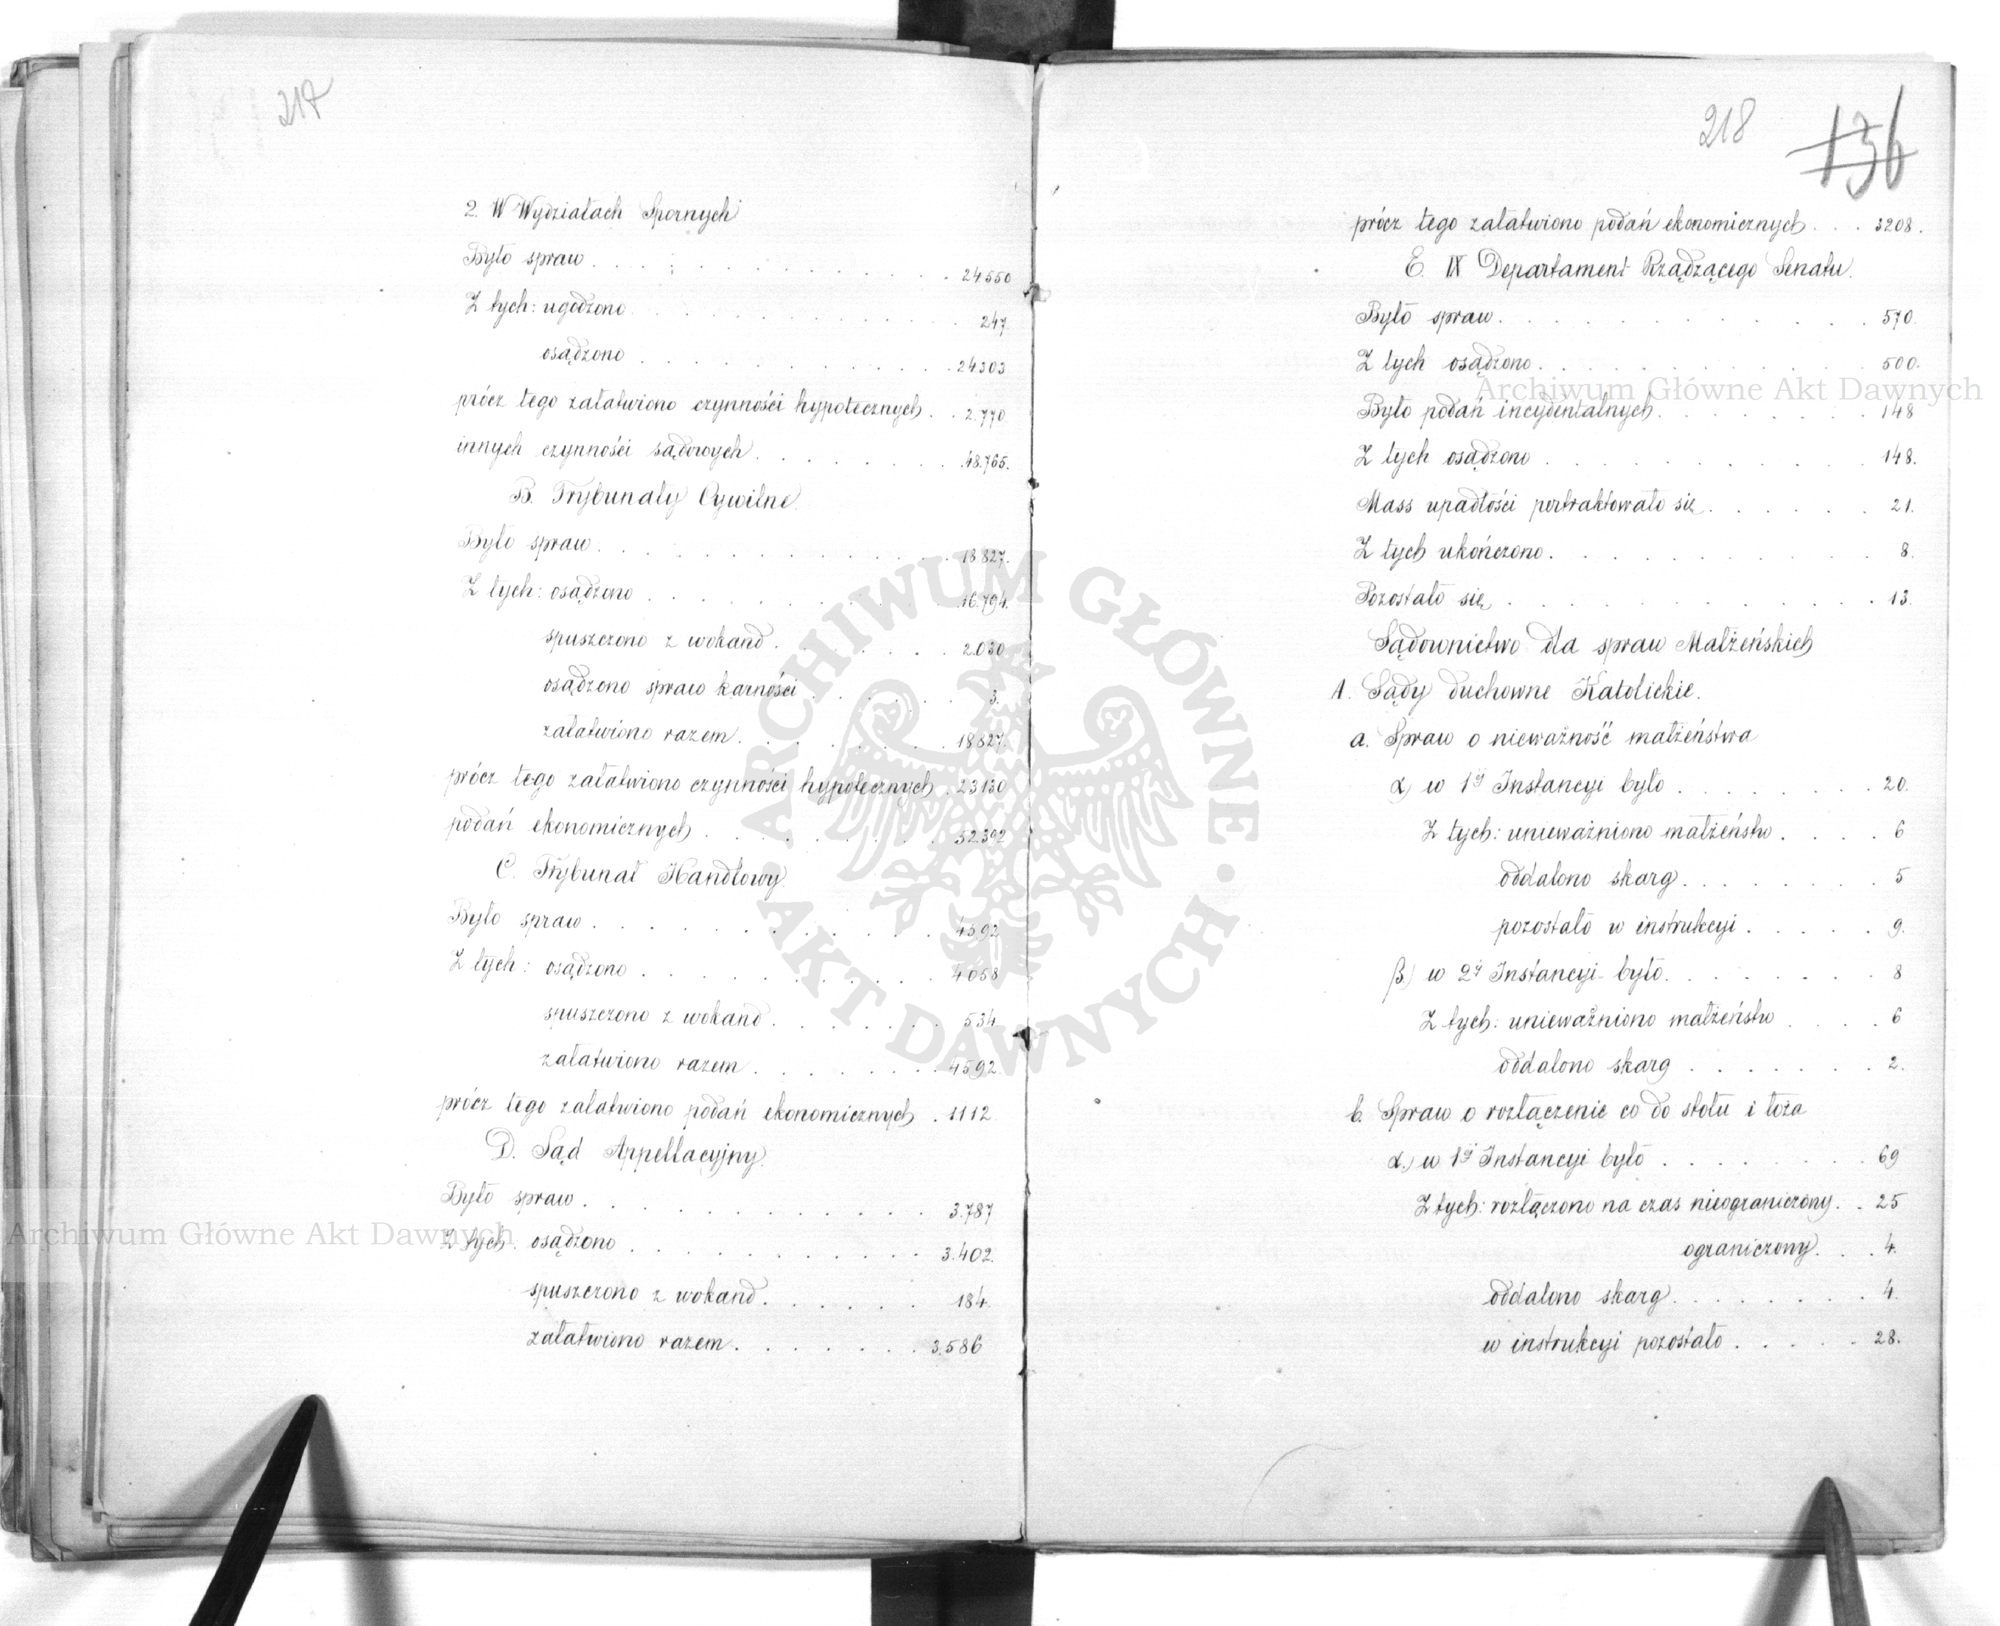 217
2. W Wydziałach Spornych
Było spraw . . . . . . . . . . . . . 24550
Z tych: ugodzono . . . . . . . . . . . . 247.
osądzono . . . . . . . . . . . . 24303
prócz tego załatwiono czynności hypotecznych . . 2.770
innych czynności sądowych . . . . . . . . 48.765.
B. Trybunały Cywilne.
Było spraw . . . . . . . . . . . . . 18827.
Z tych: osądzono . . . . . . . . . . . 16.794.
spuszczono z wokand . . . . . . . 2.030
osądzono spraw karności . . . . . 3.
załatwiono razem . . . . . . . . 18827.
prócz tego załatwiono czynności hypotecznych . 23130
podań ekonomicznych . . . . . . . . . 52.392
C. Trybunał Handlowy.
Było spraw . . . . . . . . . . . . . 4592
Z tych: osądzono . . . . . . . . . . . 4058
spuszczono z wokand . . . . . . . 534
załatwiono razem . . . . . . . . 4592.
prócz tego załatwiono podań ekonomicznych . 1112.
D. Sąd Appellacyjny.
Było spraw . . . . . . . . . . . . . 3.787
Z tych osądzono . . . . . . . . . . . 3.402.
spuszczono z wokand . . . . . . . 184.
załatwiono razem . . . . . . . . 3.586
218 136
prócz tego załatwiono podań ekonomicznych . . . 3208.
E. IX Departament Rządzącego Senatu.
Było spraw . . . . . . . . . . . . . 570.
Z tych osądzono . . . . . . . . . . . 500.
Było podań incydentalnych . . . . . . . . 148
Z tych osądzono . . . . . . . . . . . 148.
Mass upadłości pertraktowało się . . . . . . 21.
Z tych ukończono . . . . . . . . . . . 8.
Pozostało się . . . . . . . . . . . . . 13.
Sądownictwo dla spraw Małżeńskich
A. Sądy duchowne Katolickie.
a. Spraw o nieważność małżeństwa
α) w 1ej Instancyi było . . . . . . . . 20.
Z tych: unieważniono małżeństw . . . . 6
oddalono skarg . . . . . . . . 5
pozostało w instrukcyi . . . . . 9.
β) w 2ej Instancyi było . . . . . . . . 8
Z tych: unieważniono małżeństw . . . . 6
oddalono skarg . . . . . . . 2.
b. Spraw o rozłączenie co do stołu i łoża
α.) w 1ej Instancyi było . . . . . . . . 69
Z tych: rozłączono na czas nieograniczony . . 25
ograniczony . . . 4.
oddalono skarg . . . . . . . . 4.
w instrukcyi pozostało . . . . . 28.
Archiwum Główne Akt Dawnych
Archiwum Główne Akt Dawnych
ARCHIWUM GŁÓWNE
AKT DAWNYCH